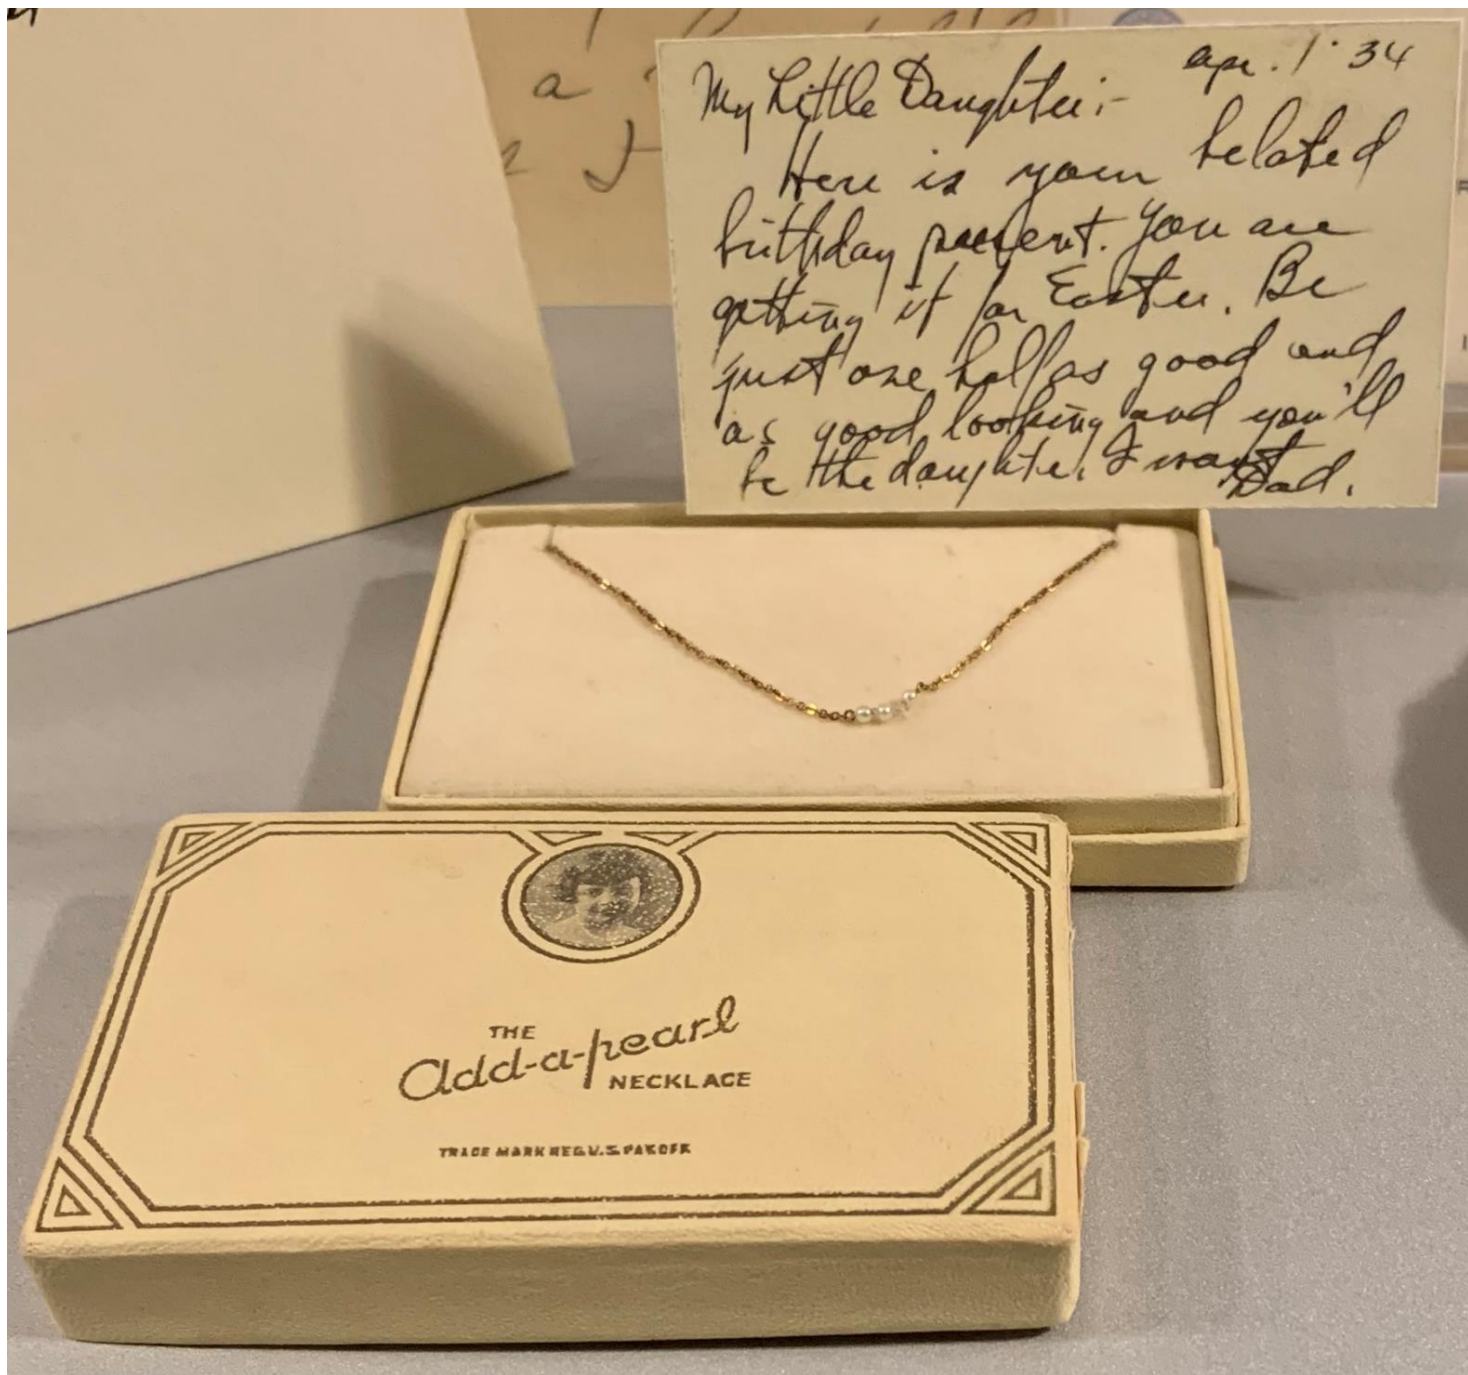 apr. 1 '34
My Little Daughter:-
Here is your belated
birthday present. You are
getting it for Easter. Be
just one half as good and
as good looking and you'll
be the daughter I want
Dad.
a
THE
add-a-pearl
NECKLACE
TRADE MARK REG. U.S. PAT. OFF.